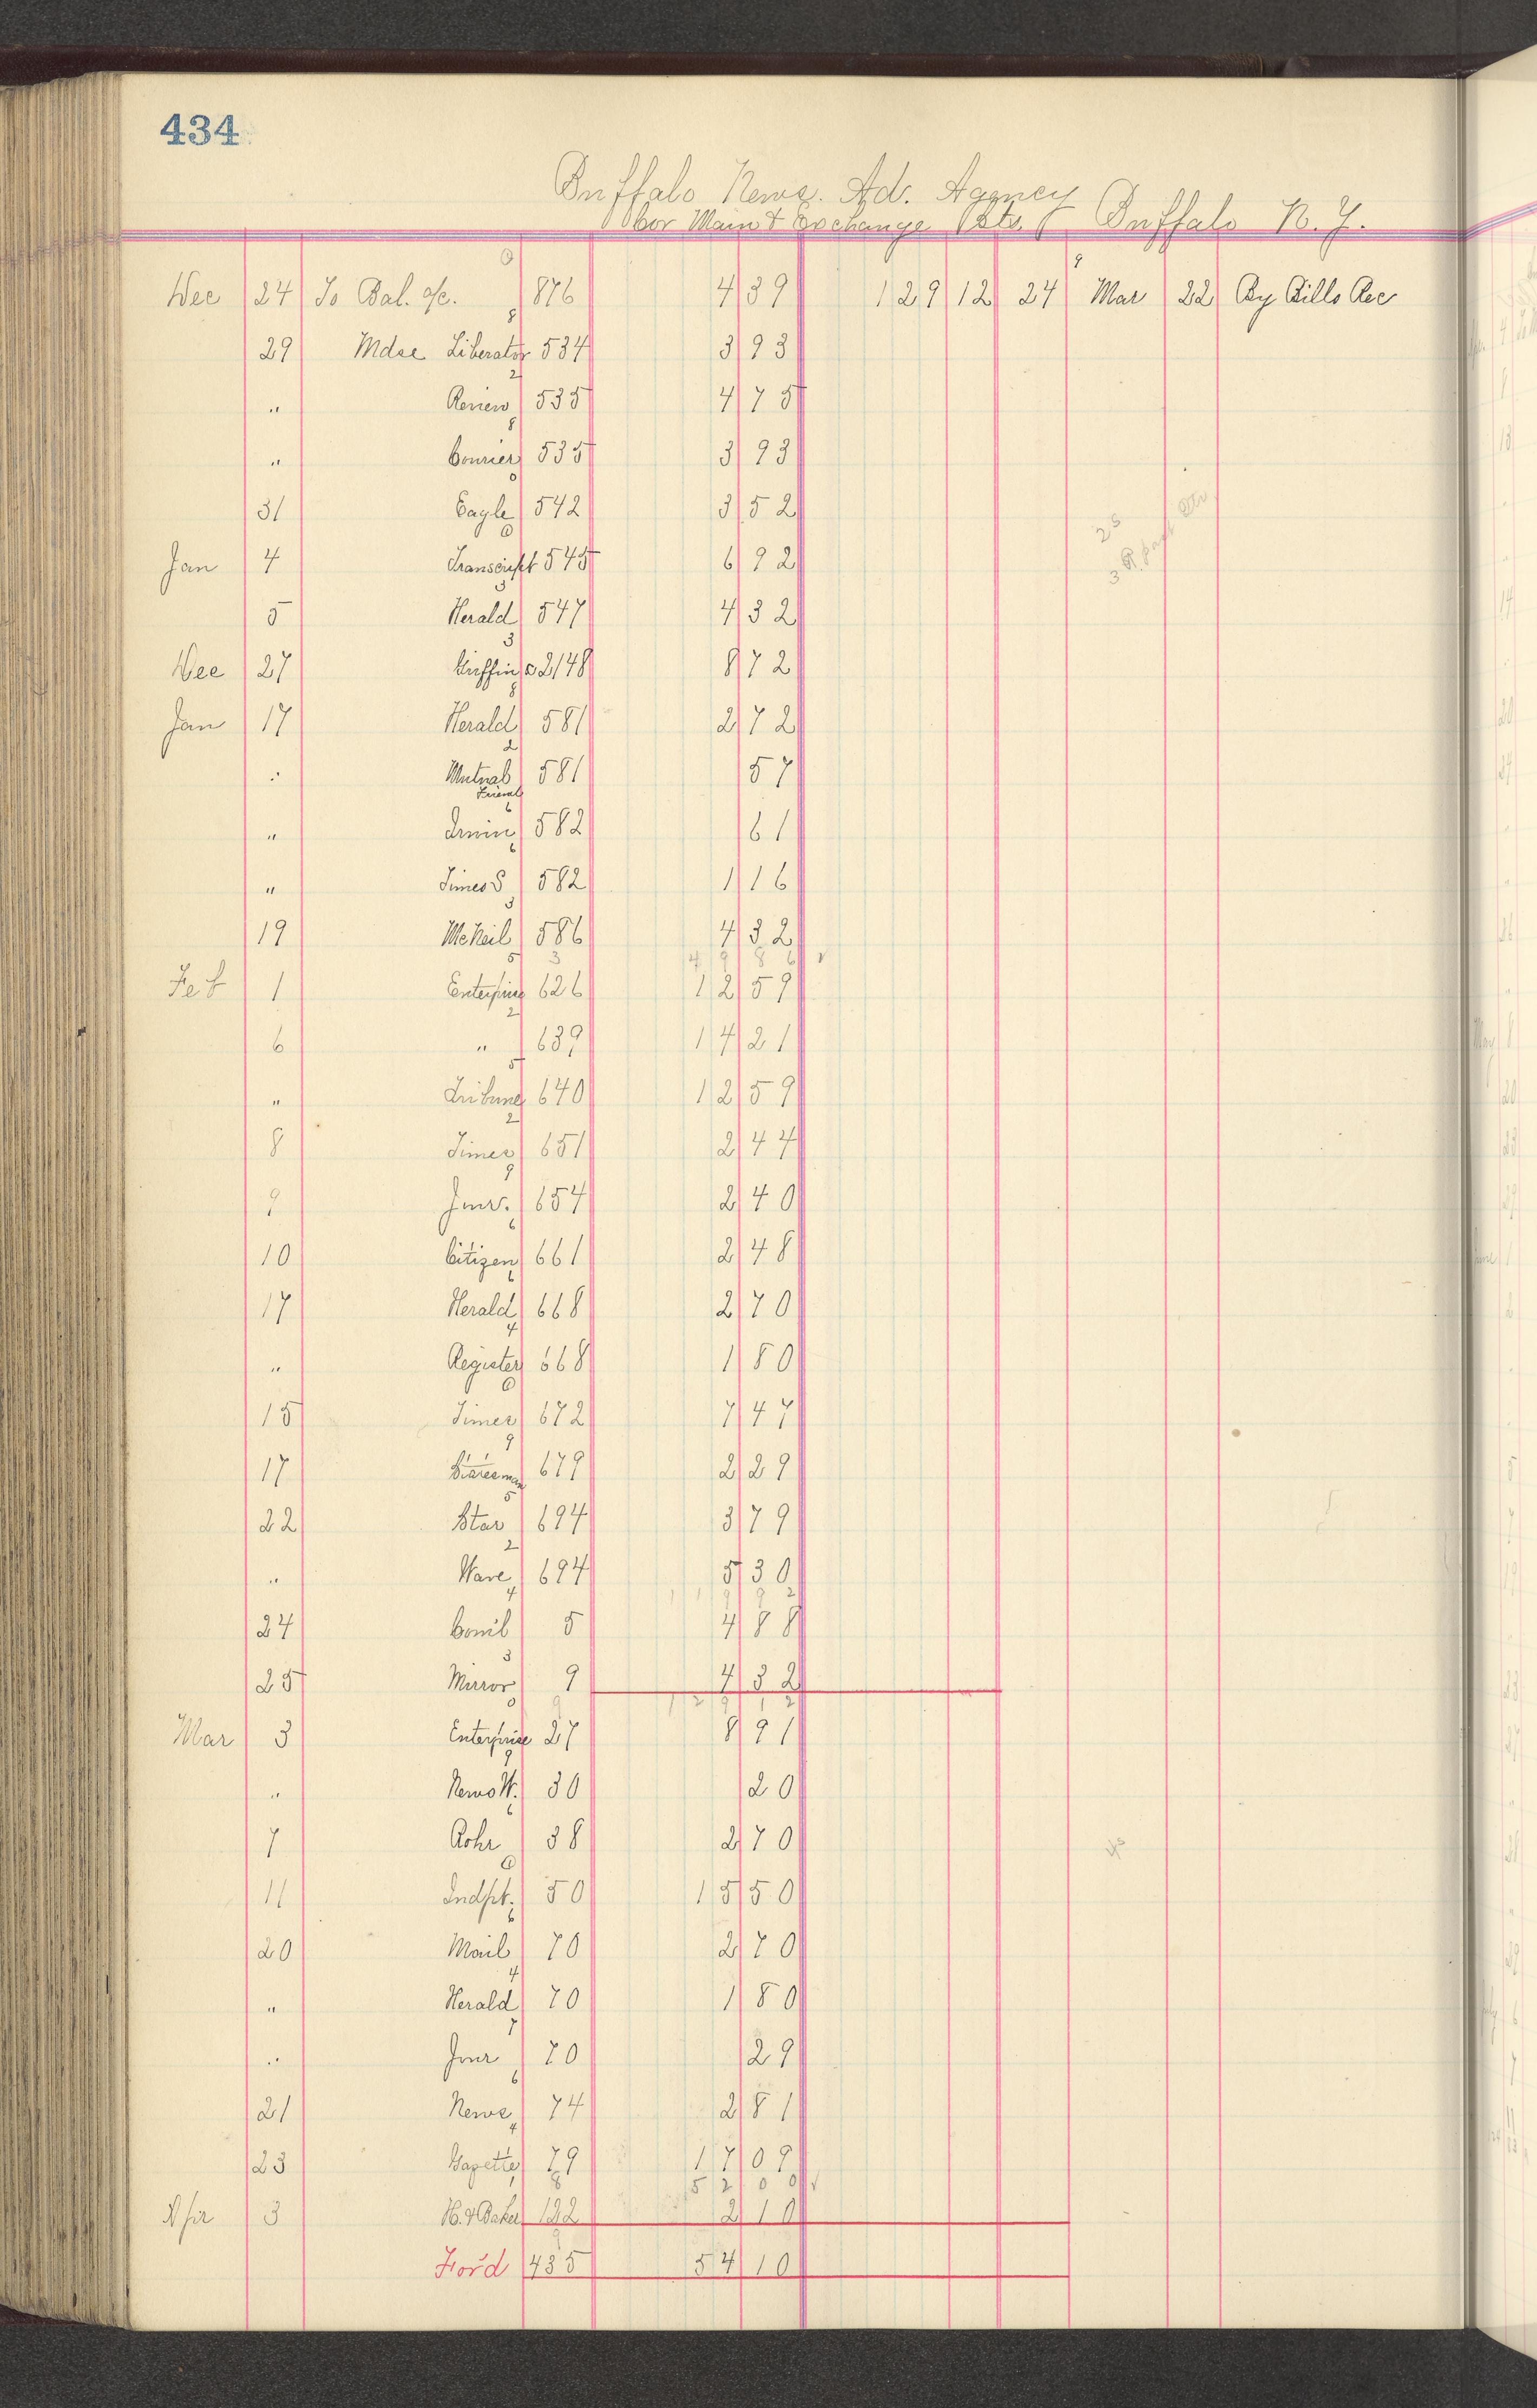 434
Buffalo News. Ad. Agency
Cor Main & Exchange Sts. Buffalo N. Y.
Dec 24 To Bal. a/c. 876 4 39 129 12 24 Mar 22 By Bills Rec
29 Mdse Liberator 534 3 93
" Review 535 4 75
" Courier 535 3 93
31 Eagle 542 3 52
Jan 4 Transcript 545 6 92
5 Herald 547 4 32
Dec 27 Griffin c 2148 8 72
Jan 17 Herald 581 2 72
" Mutual Friend 581 57
" Irwin 582 61
" Times S 582 1 16
19 McNeil 586 4 32
49 86
Feb 1 Enterprise 626 12 59
6 " 639 14 21
" Tribune 640 12 59
8 Times 651 2 44
9 Jour. 654 2 40
10 Citizen 661 2 48
17 Herald 668 2 70
" Register 668 1 80
15 Times 672 7 47
17 Statesman 679 2 29
22 Star 694 3 79
" Wave 694 5 30
119 92
24 Coml 5 4 88
25 Mirror 9 4 32
129 12
Mar 3 Enterprise 27 8 91
" News W. 30 20
7 Rohr 38 2 70
11 Indpt. 50 15 50
20 Mail 70 2 70
" Herald 70 1 80
" Jour 70 29
21 News 74 2 81
23 Gazette 79 17 09
52 00
Apr 3 H. & Baker 122 2 10
For'd 435 54 10